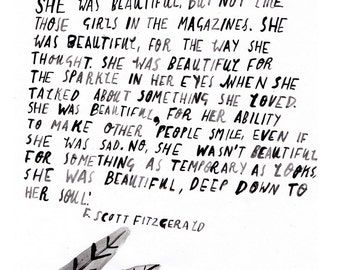 SHE WAS BEAUTIFUL, BUT NOT LIKE
THOSE GIRLS IN THE MAGAZINES. SHE
WAS BEAUTIFUL, FOR THE WAY SHE
THOUGHT. SHE WAS BEAUTIFUL FOR
THE SPARKLE IN HER EYES WHEN SHE
TALKED ABOUT SOMETHING SHE LOVED.
SHE WAS BEAUTIFUL, FOR HER ABILITY
TO MAKE OTHER PEOPLE SMILE, EVEN IF
SHE WAS SAD. NO, SHE WASN'T BEAUTIFUL
FOR SOMETHING AS TEMPORARY AS LOOKS.
SHE WAS BEAUTIFUL, DEEP DOWN TO
HER SOUL.'
F. SCOTT FITZGERALD